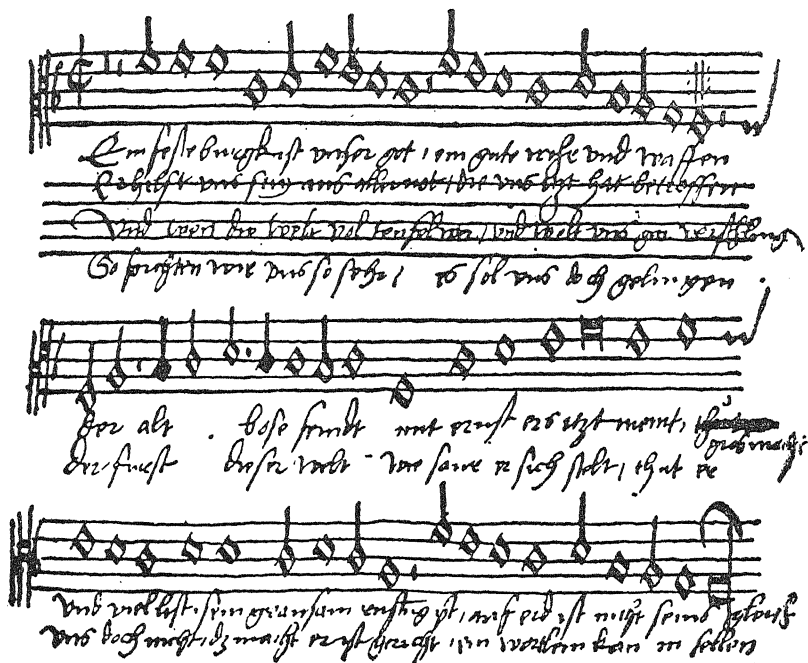 Ein feste burgk ist unser got, ein gute wehr und waffen
Er hilft uns frey aus aller not, die uns hat betroffen
Und wen die welt vol teufel wer, und wolt uns gar verschlingen
So furchten wir uns so sehr, es sol uns doch gelingen.
der alt bose feindt mit ernst ers itzt meint, gros macht
der furst dieser welt wie saur er sich stelt, that er
und viel list, sein grausam rustung ist, auf erd ist nicht seins gleich
uns doch nicht, dz macht er ist gericht, ein wortlein kan in fellen